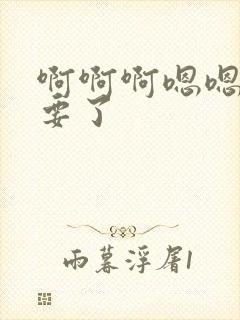 啊啊啊嗯嗯
要了
雨暮浮屠1